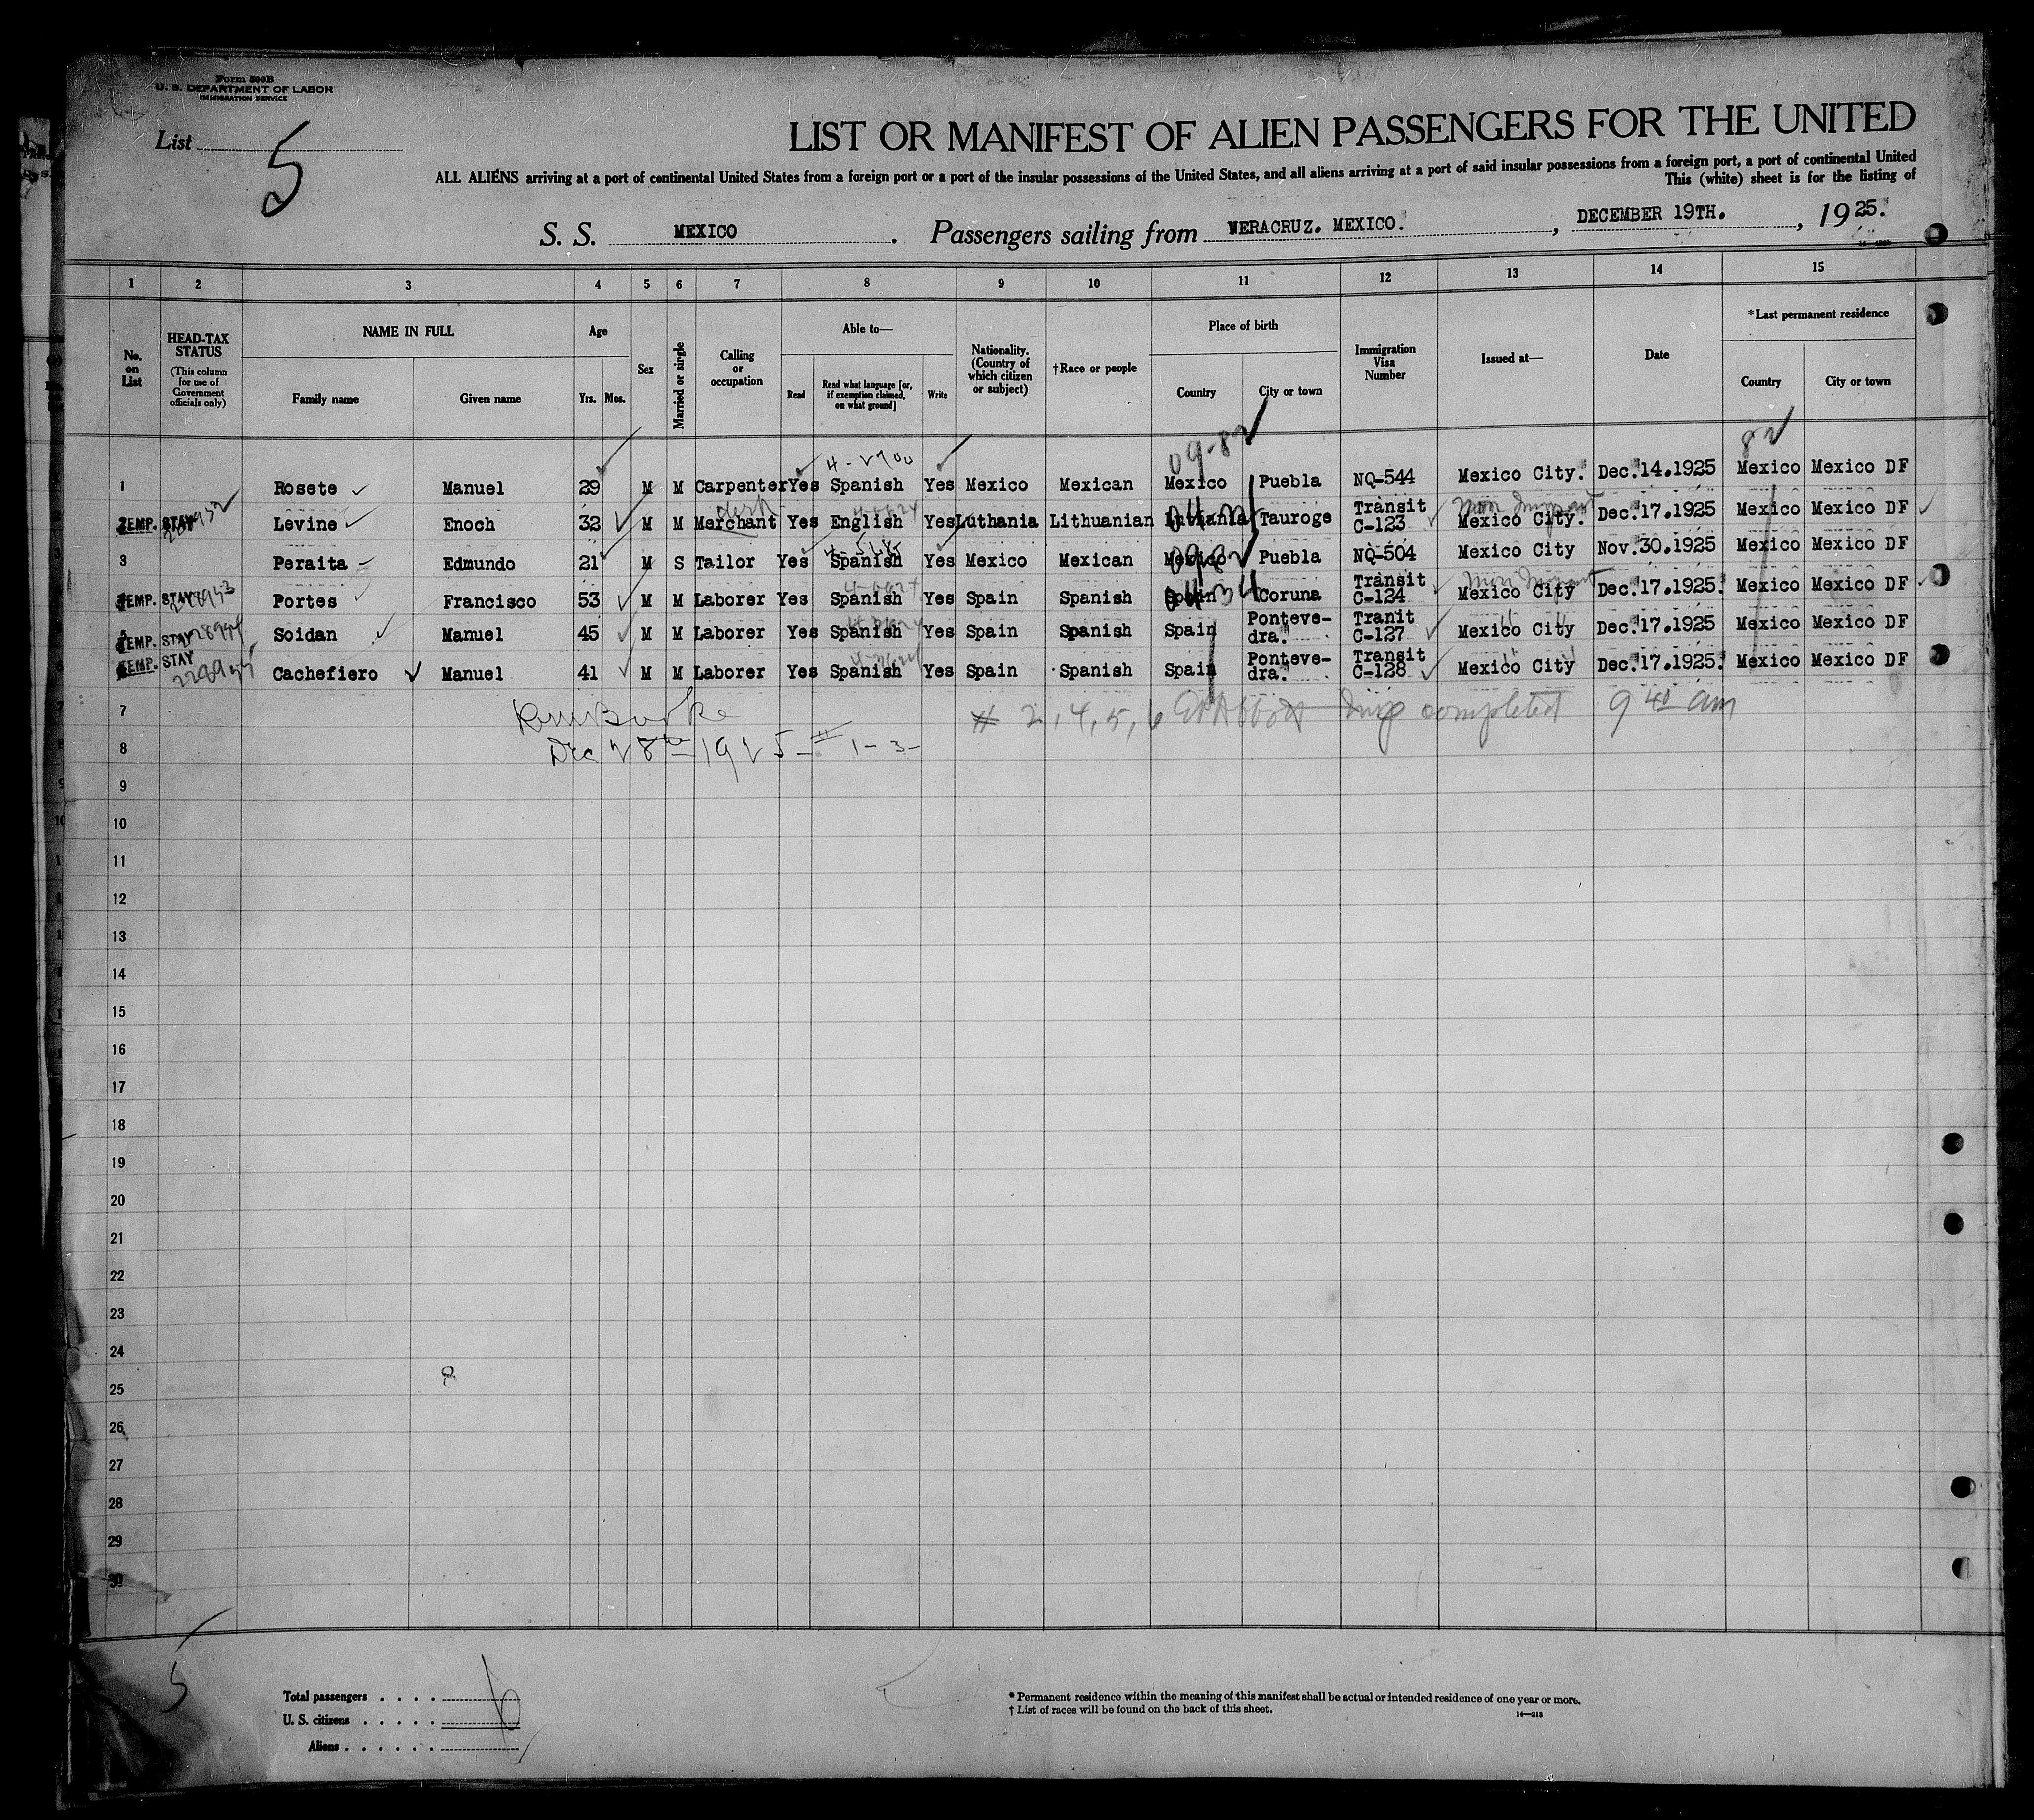 Form 500B
U. S. DEPARTMENT OF LABOR
IMMIGRATION SERVICE
List 5
LIST OR MANIFEST OF ALIEN PASSENGERS FOR THE UNITED
ALL ALIENS arriving at a port of continental United States from a foreign port or a port of the insular possessions of the United States, and all aliens arriving at a port of said insular possessions from a foreign port, a port of continental United
This (white) sheet is for the listing of
S. S. MEXICO . Passengers sailing from VERACRUZ. MEXICO. , DECEMBER 19TH. , 1925.
1 2 3 4 5 6 7 8 9 10 11 12 13 14 15
No. on List
HEAD-TAX STATUS (This column for use of Government officials only)
NAME IN FULL
Family name Given name
Age
Yrs. Mos.
Sex
Married or single
Calling or occupation
Able to—
Read Read what language [or, if exemption claimed, on what ground] Write
Nationality. (Country of which citizen or subject)
†Race or people
Place of birth
Country City or town
Immigration Visa Number
Issued at—
Date
*Last permanent residence
Country City or town
09-82 82
1 Rosete Manuel 29 M M Carpenter Yes Spanish Yes Mexico Mexican Mexico Puebla NQ-544 Mexico City. Dec.14.1925 Mexico Mexico DF
2 TEMP. STAY Levine Enoch 32 M M Merchant Yes English Yes Luthania Lithuanian Luthania Tauroge Transit C-123 Mexico City. Dec.17.1925 Mexico Mexico DF
3 Peraita Edmundo 21 M S Tailor Yes Spanish Yes Mexico Mexican Mexico Puebla NQ-504 Mexico City Nov.30.1925 Mexico Mexico DF
TEMP. STAY Portes Francisco 53 M M Laborer Yes Spanish Yes Spain Spanish Spain Coruna Transit C-124 Mexico City Dec.17.1925. Mexico Mexico DF
TEMP. STAY Soidan Manuel 45 M M Laborer Yes Spanish Yes Spain Spanish Spain Ponteve-dra. Tranit C-127 Mexico City Dec.17.1925 Mexico Mexico DF
TEMP. STAY Cachefiero Manuel 41 M M Laborer Yes Spanish Yes Spain Spanish Spain Ponteve-dra. Transit C-128 Mexico City Dec.17.1925. Mexico Mexico DF
7 # 2, 4, 5, 6 completed 9 40 am
8 Dec 28th 1925 - # 1 - 3 -
9
10
11
12
13
14
15
16
17
18
19
20
21
22
23
24
25
26
27
28
29
30
5
Total passengers . . . . 6
U. S. citizens . . . . .
Aliens . . . . . .
* Permanent residence within the meaning of this manifest shall be actual or intended residence of one year or more.
† List of races will be found on the back of this sheet.
14—213